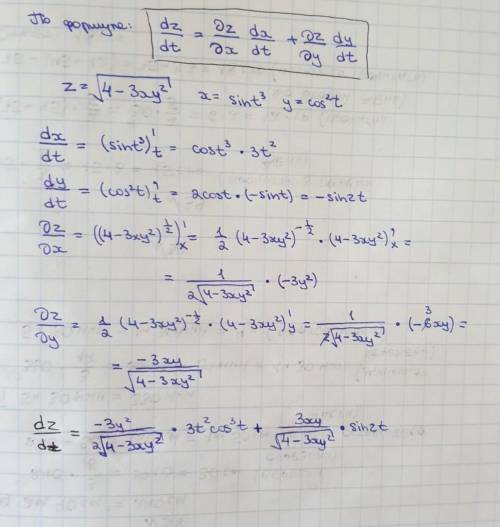 По формуле: dz/dt = ∂z/∂x dx/dt + ∂z/∂y dy/dt
z = √(4-3xy²) x = sint³ y = cos²t
dx/dt = (sint³)'t = cost³ · 3t²
dy/dt = (cos²t)'t = 2cost · (-sint) = -sin2t
∂z/∂x = ((4-3xy²)^(1/2))'x = 1/2 (4-3xy²)^(-1/2) · (4-3xy²)'x =
= 1/(2√(4-3xy²)) · (-3y²)
∂z/∂y = 1/2 (4-3xy²)^(-1/2) · (4-3xy²)'y = 1/(2√(4-3xy²)) · (-6xy) =
= -3xy/√(4-3xy²)
dz/dt = -3y²/(2√(4-3xy²)) · 3t²cos³t + 3xy/√(4-3xy²) · sin2t